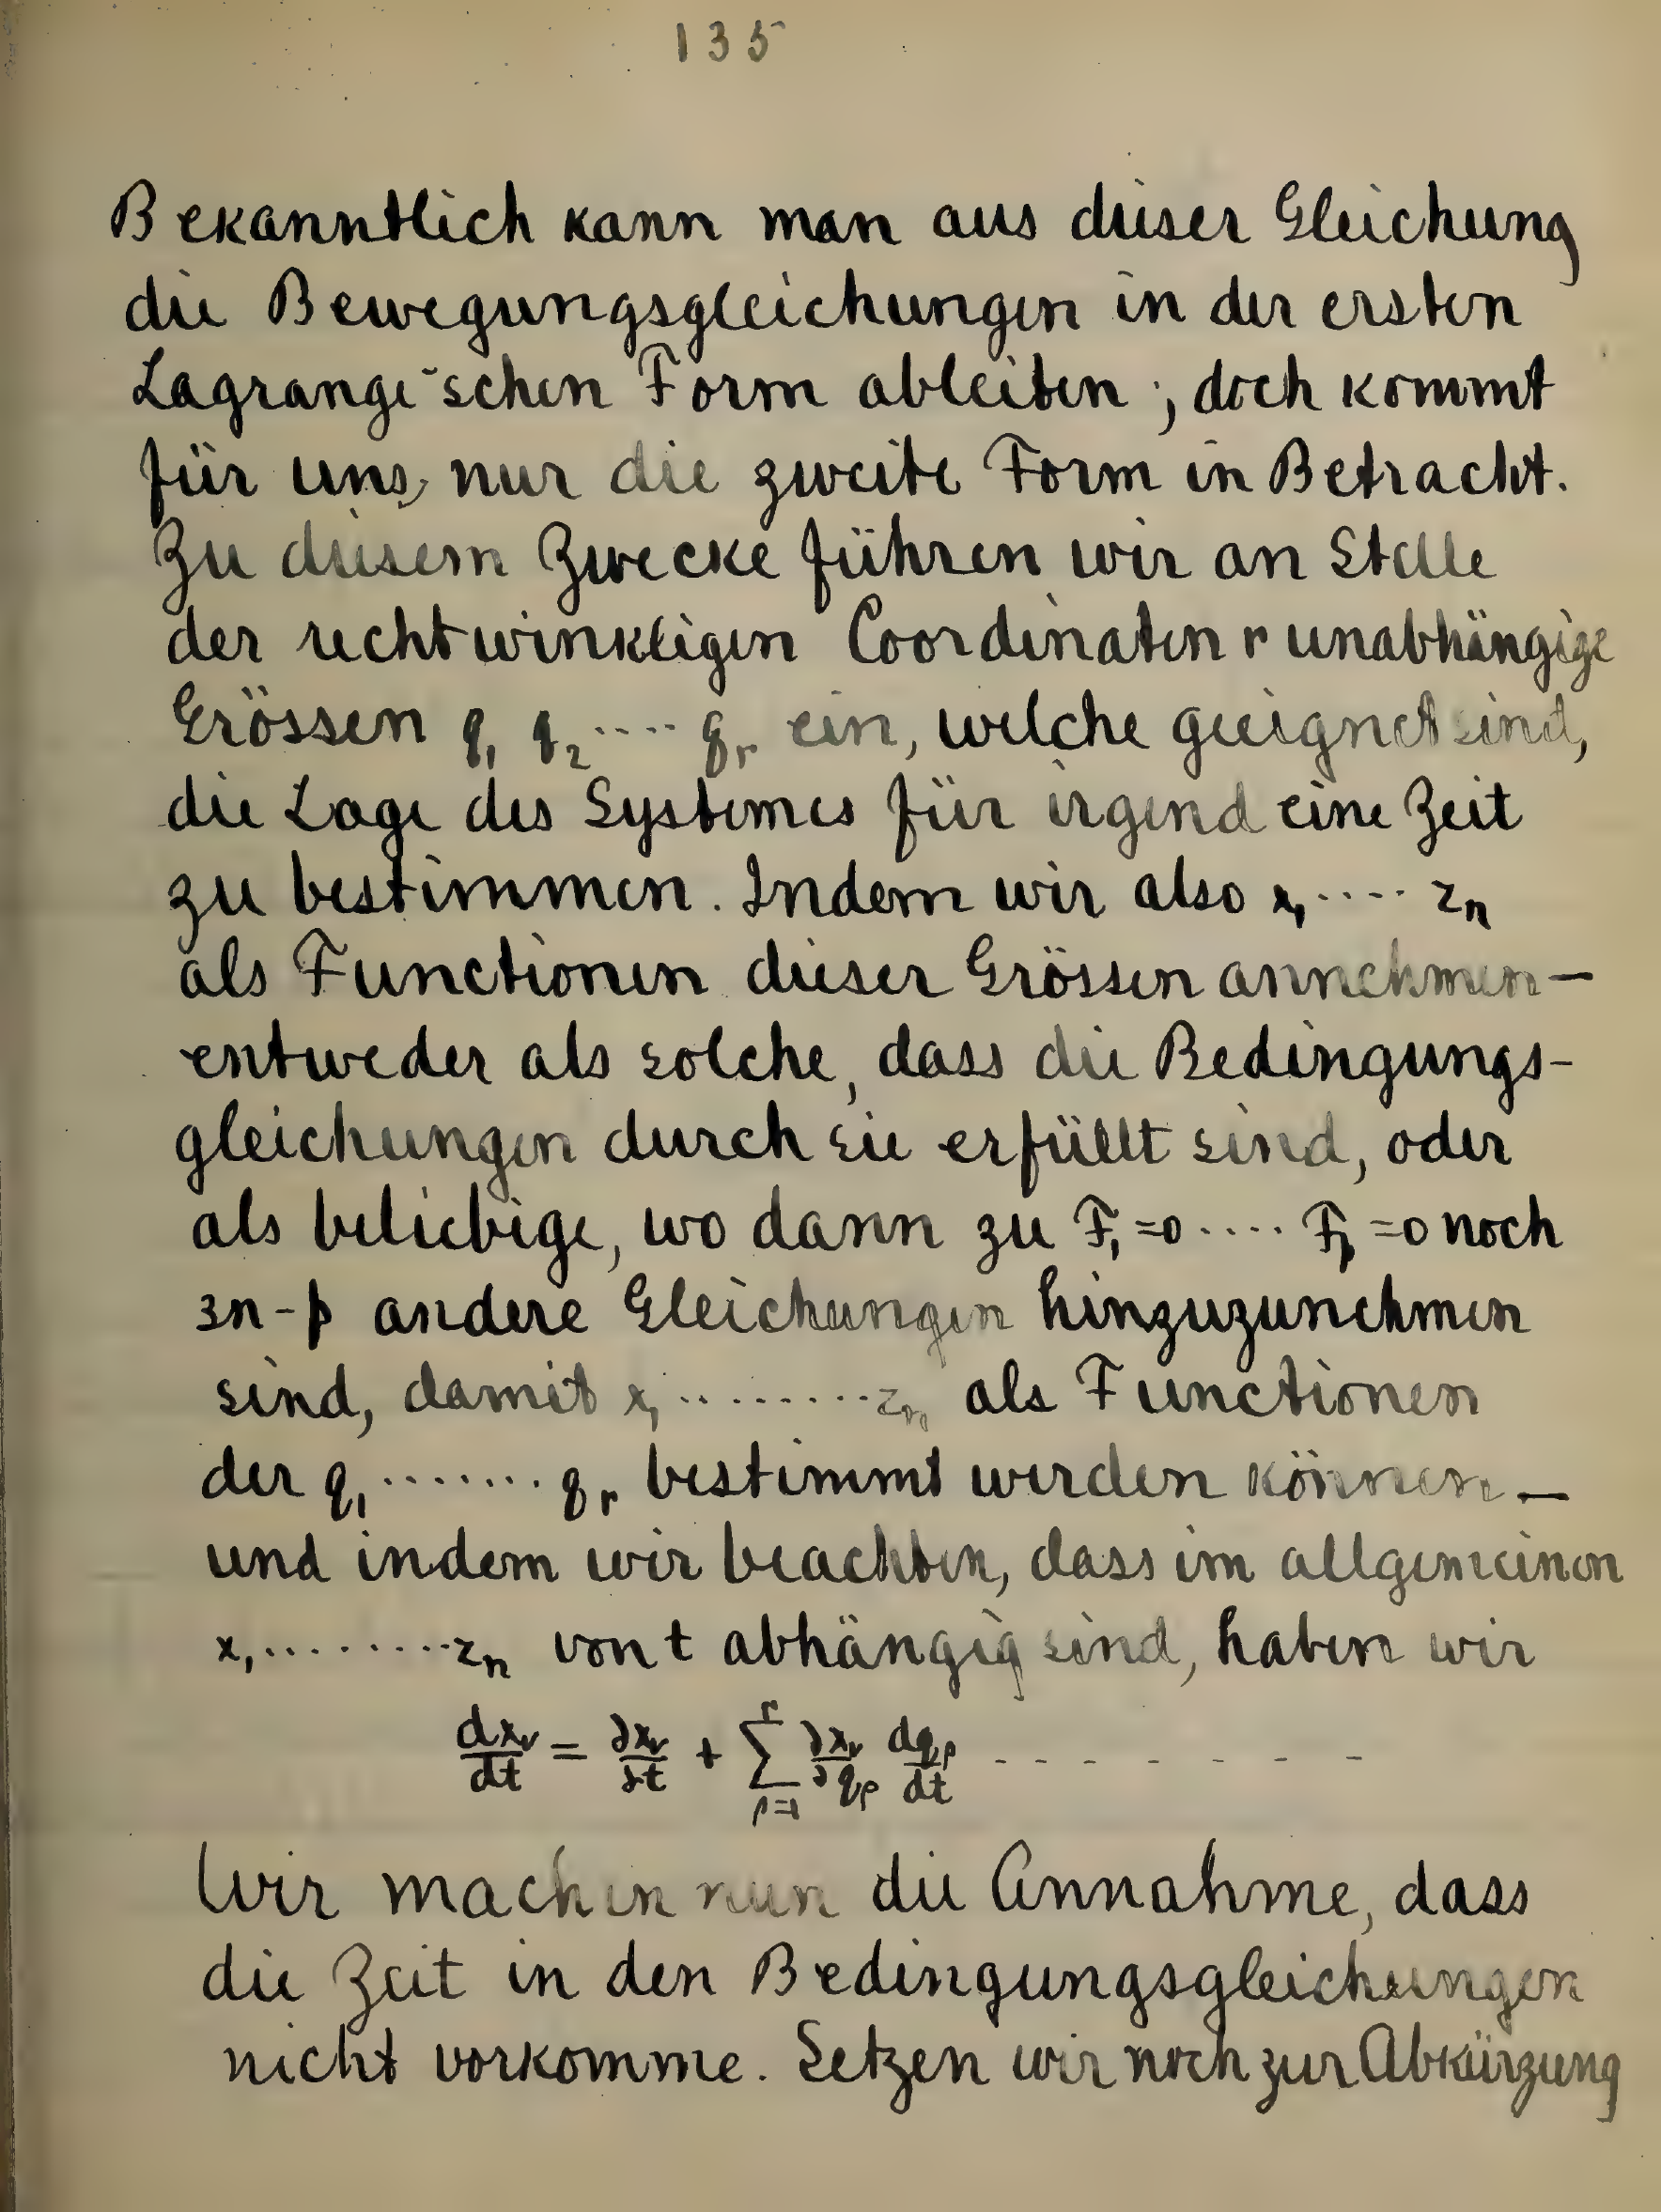 135
Bekanntlich kann man aus dieser Gleichung
die Bewegungsgleichungen in der ersten
Lagrange'schen Form ableiten; doch kommt
für uns, nur die zweite Form in Betracht.
Zu diesem Zwecke führen wir an Stelle
der rechtwinkligen Coordinaten r unabhängige
Grössen q₁ q₂ ..... qᵣ ein, welche geeignet sind,
die Lage des Systemes für irgend eine Zeit
zu bestimmen. Indem wir also x₁ ..... zₙ
als Functionen dieser Grössen annehmen —
entweder als solche, dass die Bedingungs-
gleichungen durch sie erfüllt sind, oder
als beliebige, wo dann zu F₁=0 ..... Fₚ=0 noch
3n-p andere Gleichungen hinzuzunehmen
sind, damit x₁ ......... zₙ, als Functionen
der q₁ ....... qᵣ bestimmt werden können —
und indem wir beachten, dass im allgemeinen
x₁ ......... zₙ von t abhängig sind, haben wir
dxᵥ/dt = ∂xᵥ/∂t + ∑_{ρ=1}^{r} ∂xᵥ/∂qᵨ dqᵨ/dt - - - - - - - -
Wir machen nun die Annahme, dass
die Zeit in den Bedingungsgleichungen
nicht vorkomme. Setzen wir noch zur Abkürzung